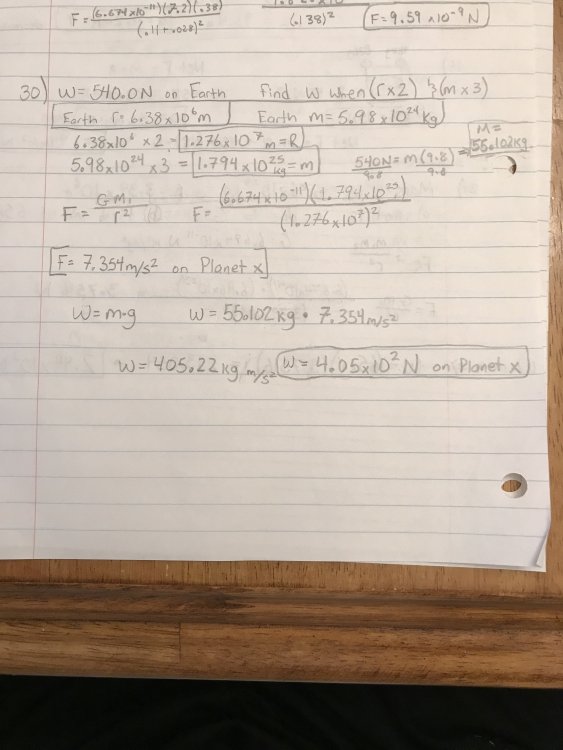 F= (6.674x10⁻¹¹)(7.2)(.38) / (.11+.028)²
(.138)² F=9.59 x10⁻⁹ N
30) W=540.0N on Earth find W when (r x2) & (m x 3)
Earth r= 6.38x10⁶m Earth m=5.98 x10²⁴kg
6.38x10⁶ x 2 = 1.276x10⁷m=R
5.98x10²⁴ x 3 = 1.794x10²⁵kg=m 540N/9.8 = m(9.8)/9.8 = M= 55.102kg
F= GM₁/r² F= (6.674x10⁻¹¹)(1.794x10²⁵)/(1.276x10⁷)²
F= 7.354m/s² on Planet x
W=m·g W=55.102kg • 7.354m/s²
W=405.22kg m/s² W= 4.05x10² N on Planet x